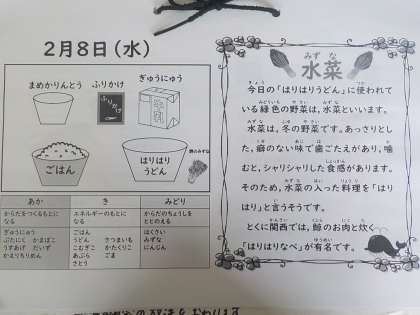 2月8日(水)
まめかりんとう
ふりかけ
ぎゅうにゅう
ふりかけ
牛乳
ごはん
はりはり
うどん
あか
き
みどり
からだをつくるもとに
なる
エネルギーのもとに
なる
からだのちょうしを
ととのえる
ぎゅうにゅう
ぶたにく かまぼこ
うすあげ だいず
かえりちりめん
ごはん
うどん さつまいも
こむぎこ かたくりこ
あぶら ごま
さとう
はくさい
みずな
にんじん
水菜
今日の「はりはりうどん」に使われて
いる緑色の野菜は、水菜といいます。
水菜は、冬の野菜です。あっさりとし
た、癖のない味で歯ごたえがあり、噛
むと、シャリシャリした食感があります。
そのため、水菜の入った料理を「はり
はり」と言うそうです。
とくに関西では、鯨のお肉と炊く
「はりはりなべ」が有名です。